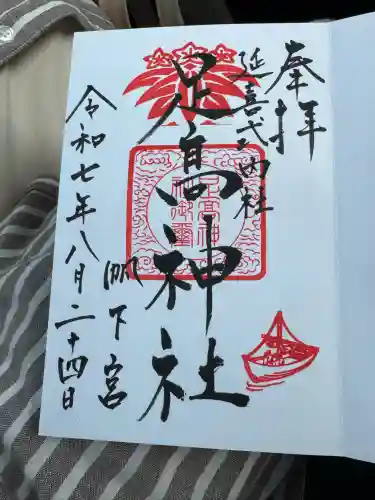 奉拝
延喜式内社
足髙神社
帆下宮
令和七年八月二十四日